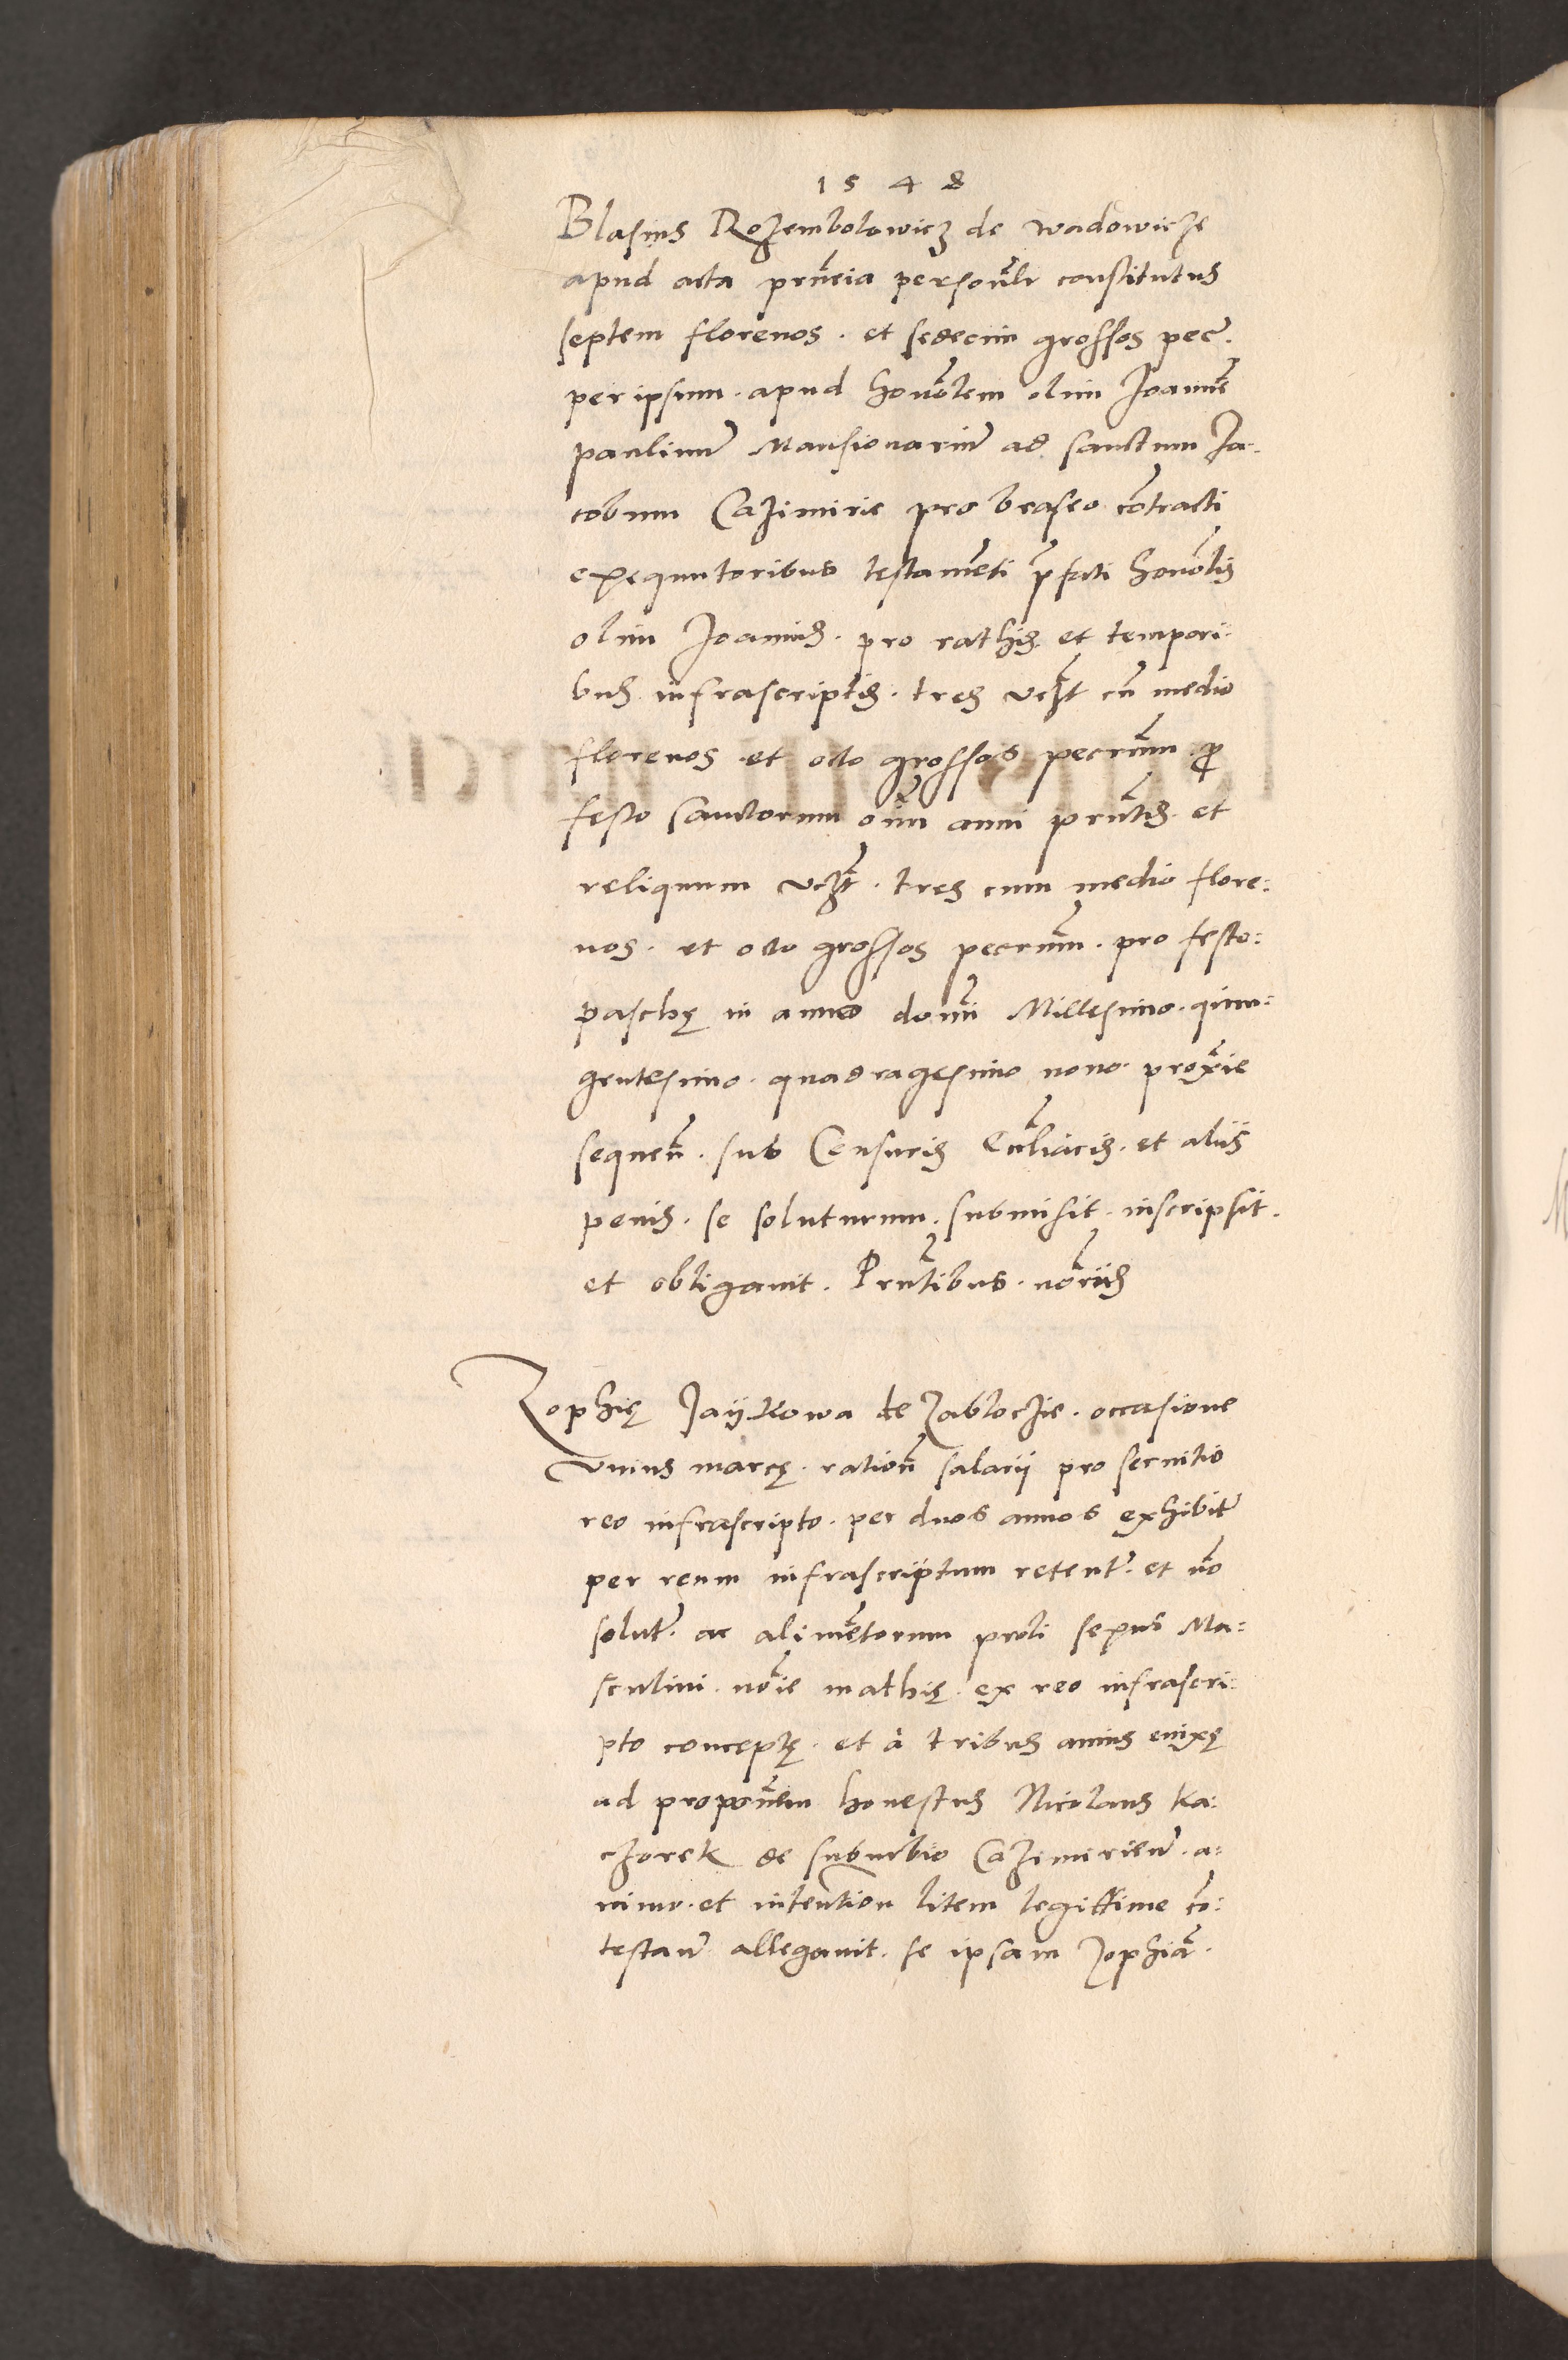 1548
Blasius Rozembolowicz de Wadowicze
apud acta pñcia personalr constitutus
septem florenos . et sedecim grossos pec .
per ipsum . apud honoblem olim Joanne
paulinum Mansionarium ad sanctum Ja-
cobum Cazimirie pro braseo cotracti
exequutoribus testameti pfati honoblis
olim Joannis . pro rathis et tempori-
bus infrascriptis . tres vczt cu medio
florenos et octo grossos pecrum . p
festo sanctorum oim anni pntis et
reliquum vczt . tres cum medio flore:
nos . et octo grossos pecrum . pro festo:
paschę in anno domi Millesimo . quin-
gentesimo . quadragesimo nono . proxie
sequen . sub Censuris Eccliacis . et aliis
penis . se soluturum . submisit . inscripsit .
et obligauit . Prntibus . noriis
Zophię de Zabloczie . occasione
vnius marcę . ration salarii pro seruitio
reo infrascripto . per duos annos exhibit
per reum infrascriptum retent . et no
solut . ac alimetorum proli sexus Ma:
sculini . noie mathię . ex reo infrascri:
pto conceptę . et à tribus annis enixę
ad proponem honestus Nicolaus Ka:
czorek de suburbio Cazimirien . a:
nimo . et intention litem legittime co:
testan allegauit . se ipsam Zophia .